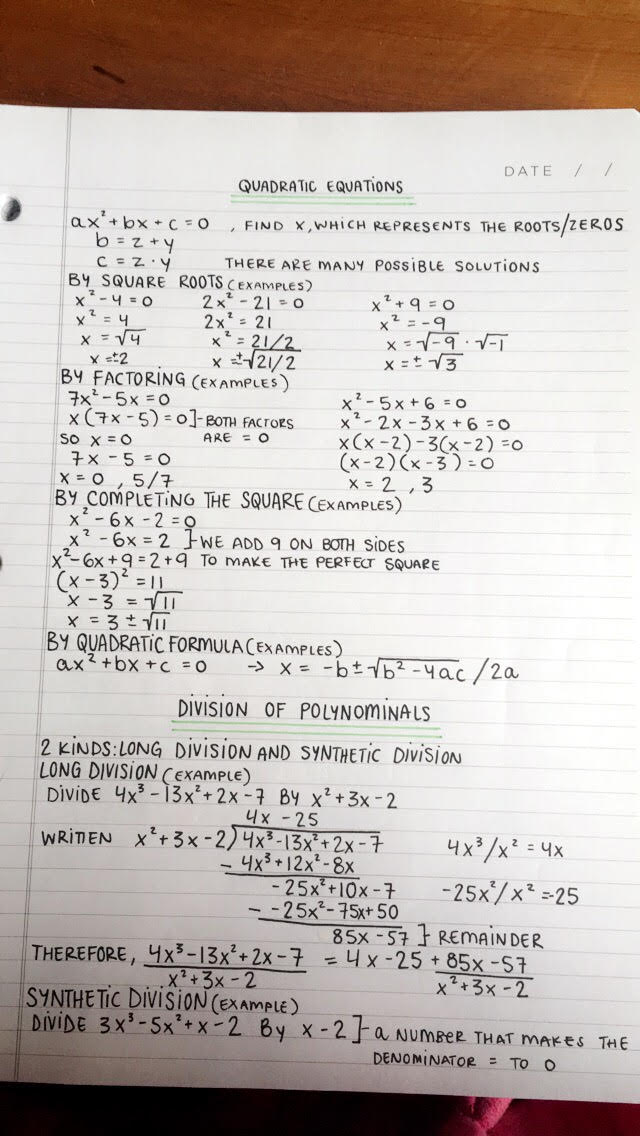 DATE / /
QUADRATIC EQUATIONS
ax²+bx+c=0 , FIND X, WHICH REPRESENTS THE ROOTS/ZEROS
b = z + y
c = z · y THERE ARE MANY POSSIBLE SOLUTIONS
BY SQUARE ROOTS (EXAMPLES)
x² - 4 = 0 2x² - 21 = 0 x² + 9 = 0
x² = 4 2x² = 21 x² = -9
x = √4 x² = 21/2 x = √-9 · √-1
x = ±2 x = ±√21/2 x = ± √3
BY FACTORING (EXAMPLES)
7x² - 5x = 0 x² - 5x + 6 = 0
x(7x - 5) = 0]- BOTH FACTORS x² - 2x - 3x + 6 = 0
SO x = 0 ARE = 0 x(x - 2) - 3(x - 2) = 0
7x - 5 = 0 (x - 2)(x - 3) = 0
x = 0 , 5/7 x = 2 , 3
BY COMPLETING THE SQUARE (EXAMPLES)
x² - 6x - 2 = 0
x² - 6x = 2 }- WE ADD 9 ON BOTH SIDES
x² - 6x + 9 = 2 + 9 TO MAKE THE PERFECT SQUARE
(x - 3)² = 11
x - 3 = √11
x = 3 ± √11
BY QUADRATIC FORMULA (EXAMPLES)
ax² + bx + c = 0 → x = -b ± √b² - 4ac / 2a
DIVISION OF POLYNOMINALS
2 KINDS: LONG DIVISION AND SYNTHETIC DIVISION
LONG DIVISION (EXAMPLE)
DIVIDE 4x³ - 13x² + 2x - 7 BY x² + 3x - 2
4x - 25
WRITTEN x² + 3x - 2) 4x³ - 13x² + 2x - 7 4x³/x² = 4x
- 4x³ + 12x² - 8x
-25x² + 10x - 7 -25x²/x² = -25
- -25x² - 75x + 50
85x - 57 } REMAINDER
THEREFORE, 4x³ - 13x² + 2x - 7 = 4x - 25 + 85x - 57
x² + 3x - 2 x² + 3x - 2
SYNTHETIC DIVISION (EXAMPLE)
DIVIDE 3x³ - 5x² + x - 2 BY x - 2 ]- a NUMBER THAT MAKES THE
DENOMINATOR = TO 0